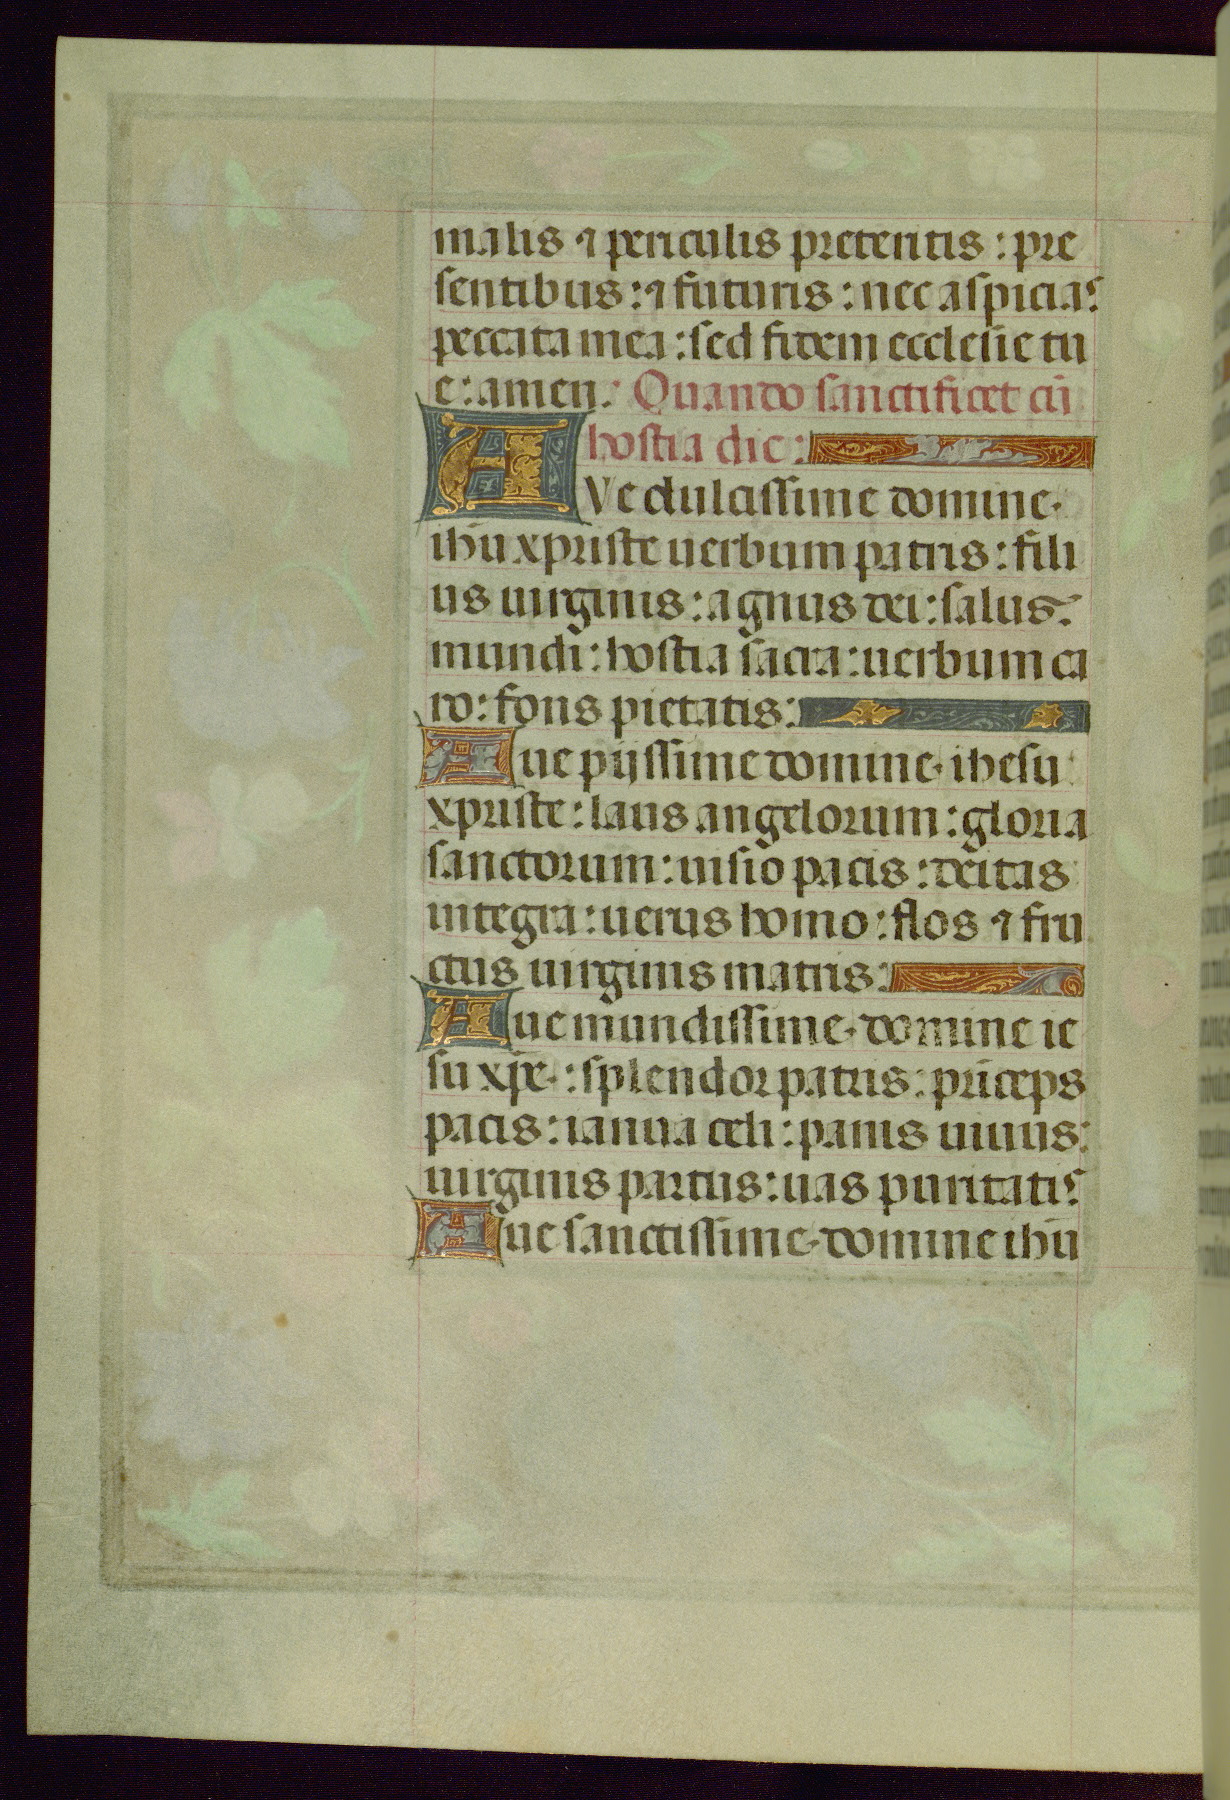 malis ⁊ periculis preteritis : pre
sentibus : ⁊ futuris : nec aspicias
peccata mea : sed fidem ecclesie tu
e : amen : Quando sanctificet cū
hostia dic :
AVe dulcissime domine ·
ihū xpriste uerbum patris : fili
us uirginis : agnus dei : salus :
mundi : hostia sacra : uerbum ca
ro : fons pietatis :
Aue pijssime domine · ihesu
xpriste : laus angelorum : gloria
sanctorum : uisio pacis : deitas
integra : uerus homo : flos ⁊ fru
ctus uirginis matris :
Aue mundissime · domine ie
su xp̄e · : splendor patris : prīceps
pacis : ianua celi : panis uiuus :
uirginis partus : uas puritatis
Aue sanctissime · domine ihū